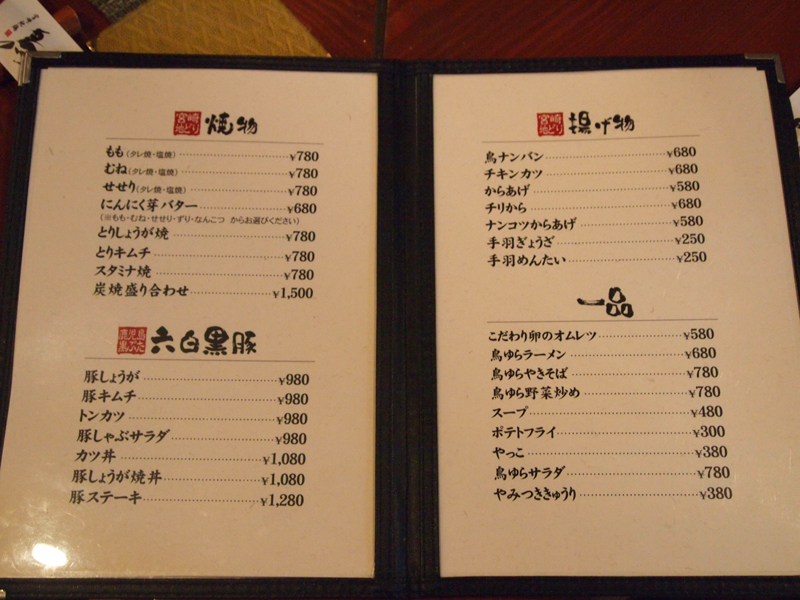 宮崎地どり 焼物
もも(タレ焼・塩焼) ¥780
むね(タレ焼・塩焼) ¥780
せせり(タレ焼・塩焼) ¥780
にんにく芽バター ¥680
(※もも・むね・せせり・ずり・なんこつ からお選びください)
とりしょうが焼 ¥780
とりキムチ ¥780
スタミナ焼 ¥780
炭焼盛り合わせ ¥1,500
鹿児島黒ぶた 六白黒豚
豚しょうが ¥980
豚キムチ ¥980
トンカツ ¥980
豚しゃぶサラダ ¥980
カツ丼 ¥1,080
豚しょうが焼丼 ¥1,080
豚ステーキ ¥1,280
宮崎地どり 揚げ物
鳥ナンバン ¥680
チキンカツ ¥680
からあげ ¥580
チリから ¥680
ナンコツからあげ ¥580
手羽ぎょうざ ¥250
手羽めんたい ¥250
一品
こだわり卵のオムレツ ¥580
鳥ゆらラーメン ¥680
鳥ゆらやきそば ¥780
鳥ゆら野菜炒め ¥780
スープ ¥480
ポテトフライ ¥300
やっこ ¥380
鳥ゆらサラダ ¥780
やみつききゅうり ¥380